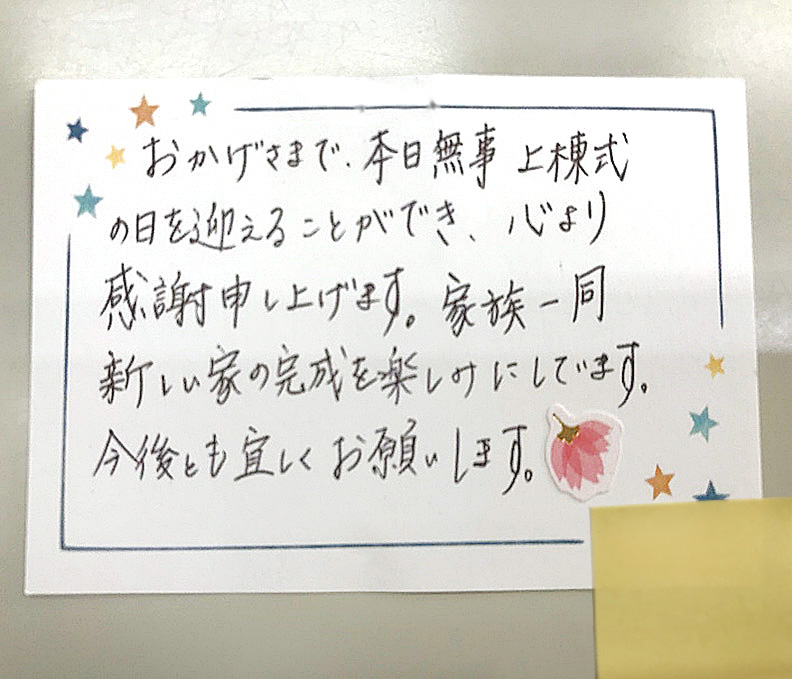 おかげさまで、本日無事 上棟式
の日を迎えることができ、心より
感謝申し上げます。家族一同
新しい家の完成を楽しみにしています。
今後とも宜しくお願いします。